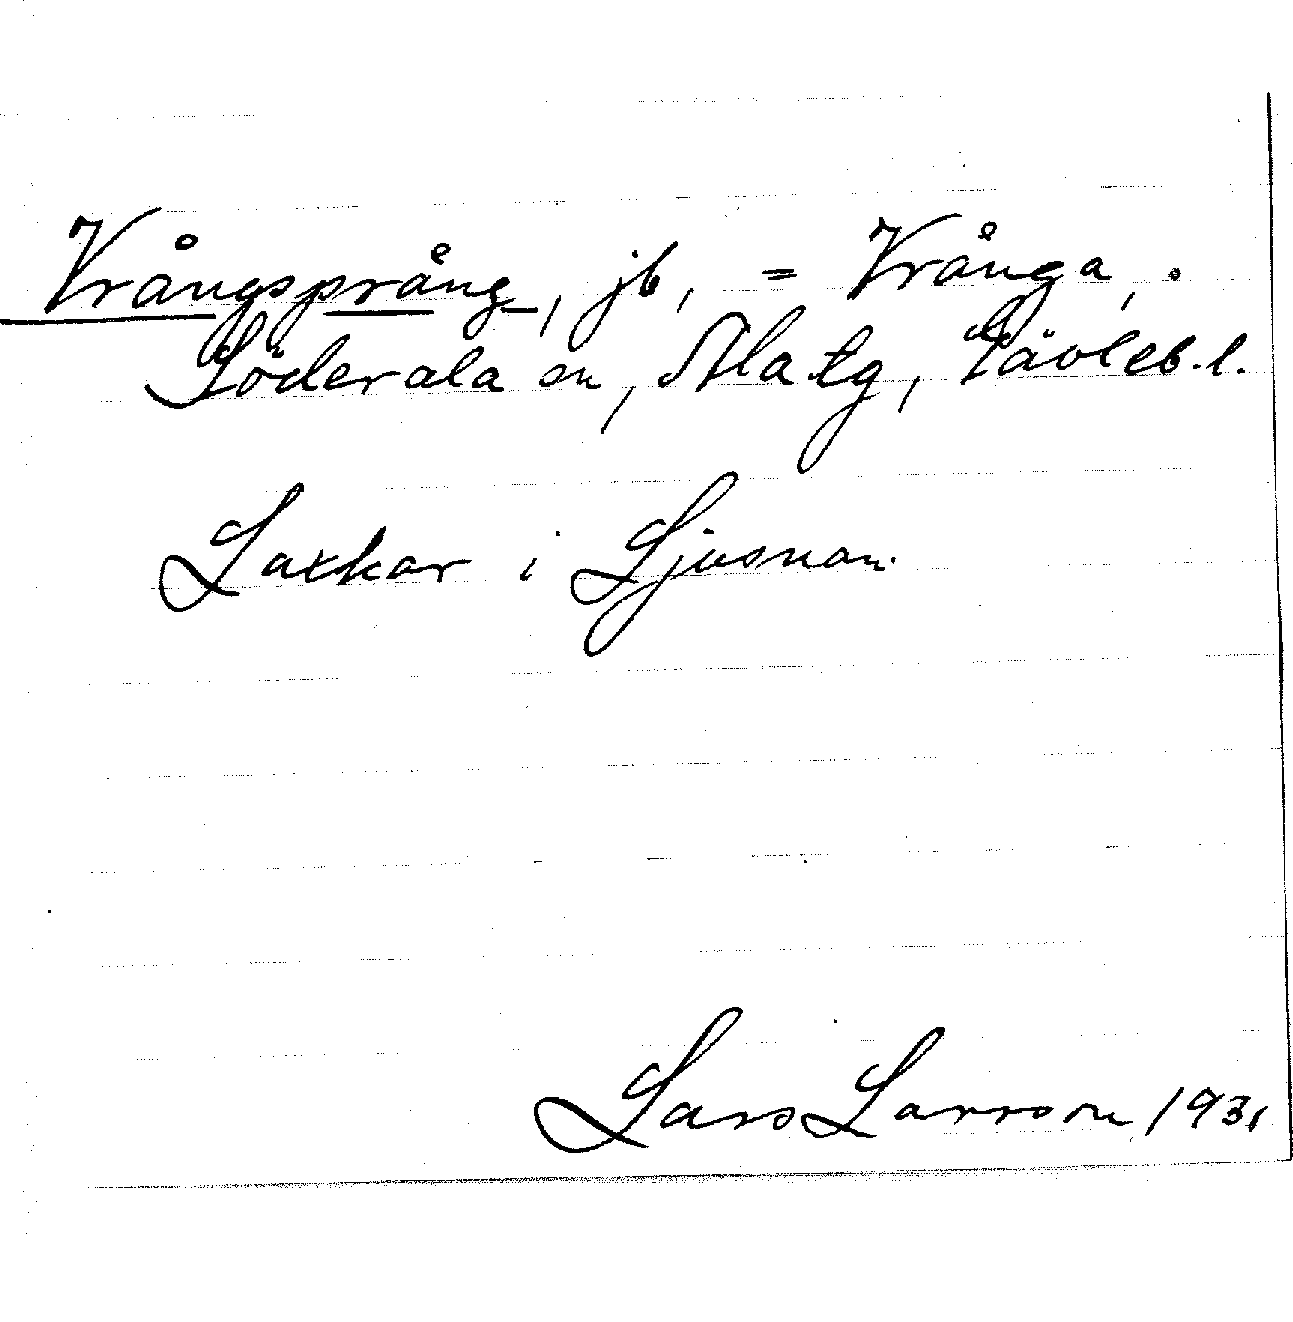 Vrångsprång, jb, = Vrånga,
Söderala sn, Ala tg, Gävleb. l.
Laxkar i Ljusnan.
Lars Larsson 1931